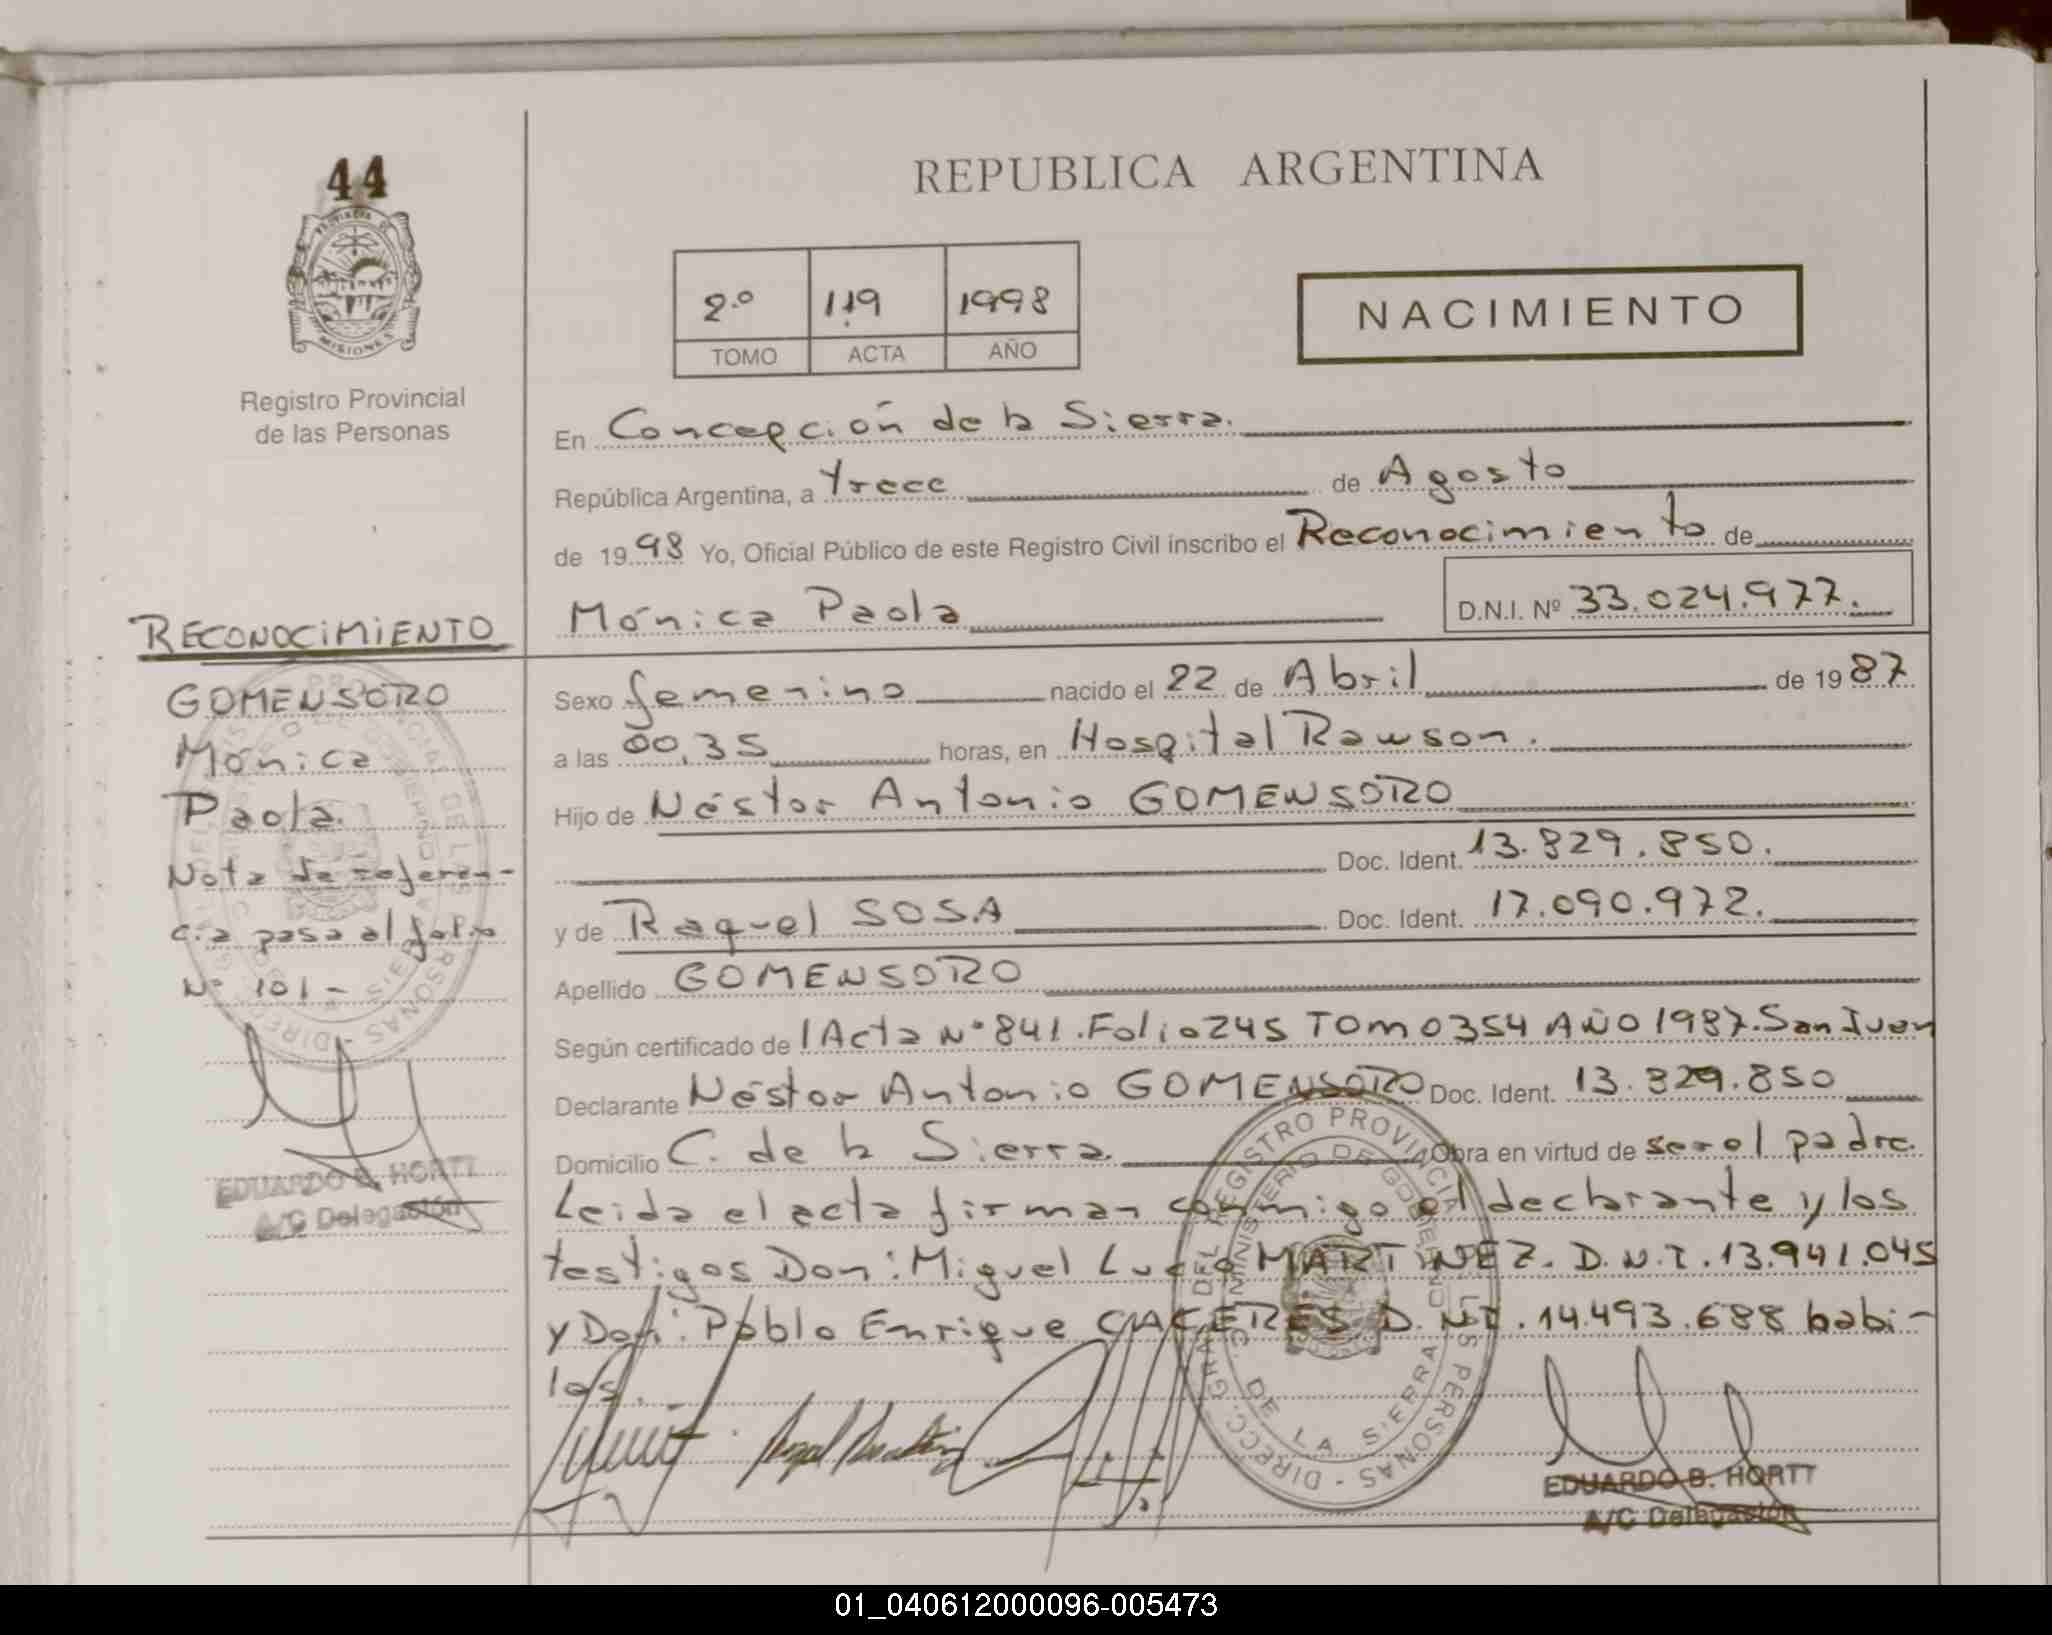 44
PROVINCIA DE
MISIONES
Registro Provincial
de las Personas
REPUBLICA ARGENTINA
2.º 119 1998
TOMO ACTA AÑO
NACIMIENTO
En Concepción de la Sierra.
República Argentina, a trece de Agosto
de 1998 Yo, Oficial Público de este Registro Civil inscribo el Reconocimiento de
Mónica Paola D.N.I. Nº 33.024.977.
Sexo femenino nacido el 22 de Abril de 1987
a las 00,35 horas, en Hospital Rawson.
Hijo de Néstor Antonio GOMENSORO
Doc. Ident. 13.829.850.
y de Raquel SOSA Doc. Ident. 17.090.972.
Apellido GOMENSORO
Según certificado de 1 Acta Nº 841. Folio 245 TOMO 354 AÑO 1987. San Juan
Declarante Néstor Antonio GOMENSORO Doc. Ident. 13.829.850
Domicilio C. de la Sierra. Obra en virtud de ser el padre.
Leida el acta firman conmigo el declarante y los
testigos Don: Miguel Lucio MARTINEZ. D.N.I. 13.941.045
y Don: Pablo Enrique CACERES D.NI. 14.493.688 habi-
les.
EDUARDO B. HORTT
A/C Delegación
RECONOCIMIENTO
GOMENSORO
Mónica
Paola.
Nota de referen-
cia pasa al folio
Nº 101-
EDUARDO B. HORTT
A/C Delegación
DIRECC. GRAL DEL REGISTRO PROVINCIAL DE LAS PERSONAS
MINISTERIO DE GOBIERNO
C. DE LA SIERRA
01_040612000096-005473